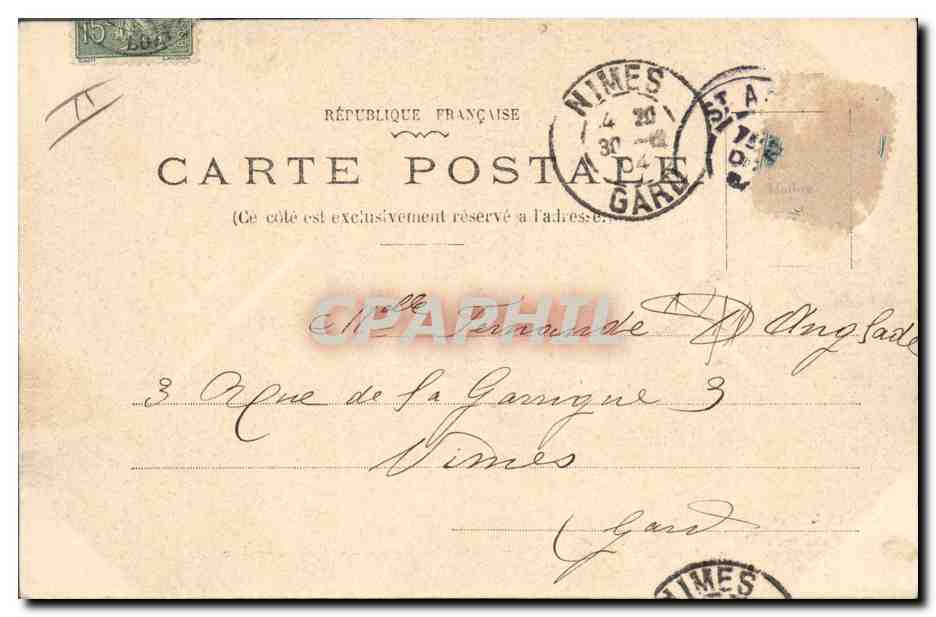 15
RÉPUBLIQUE FRANÇAISE
CARTE POSTALE
(Ce côté est exclusivement réservé a l'adresse)
NIMES
4 20
30 -12
04
GARD
ST A
CPAPHIL
Melle Fernande D'Anglade
3 Rue de la Garrigue 3
Nimes
Gard
NIMES